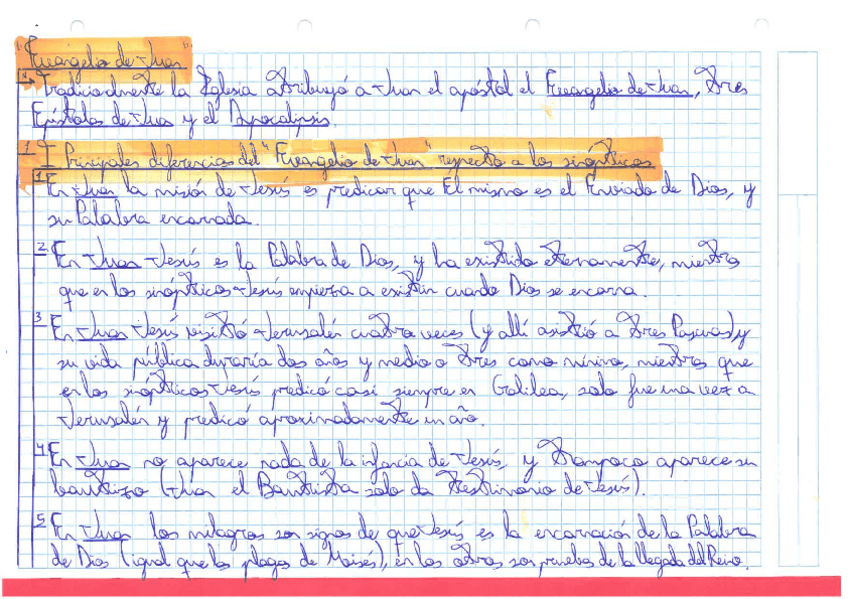 "Evangelio de Juan"
→ Tradicionalmente la Iglesia atribuyó a Juan el apóstol el Evangelio de Juan, tres
Epístolas de Juan y el Apocalipsis.
1 I Principales diferencias del "Evangelio de Juan" respecto a los sinópticos
1 En Juan la misión de Jesús es predicar que Él mismo es el Enviado de Dios, y
su Palabra encarnada.
2 En Juan Jesús es la Palabra de Dios, y ha existido eternamente, mientras
que en los sinópticos Jesús empieza a existir cuando Dios se encarna.
3 En Juan Jesús visitó Jerusalén cuatro veces (y allí asistió a tres Pascuas) y
su vida pública duraría dos años y medio o tres como mínimo, mientras que
en los sinópticos Jesús predicó casi siempre en Galilea, solo fue una vez a
Jerusalén y predicó aproximadamente un año.
4 En Juan no aparece nada de la infancia de Jesús, y tampoco aparece su
bautizo (Juan el Bautista solo da testimonio de Jesús).
5 En Juan los milagros son signos de que Jesús es la encarnación de la Palabra
de Dios (igual que las plagas de Moisés), en los otros son pruebas de la llegada del Reino.